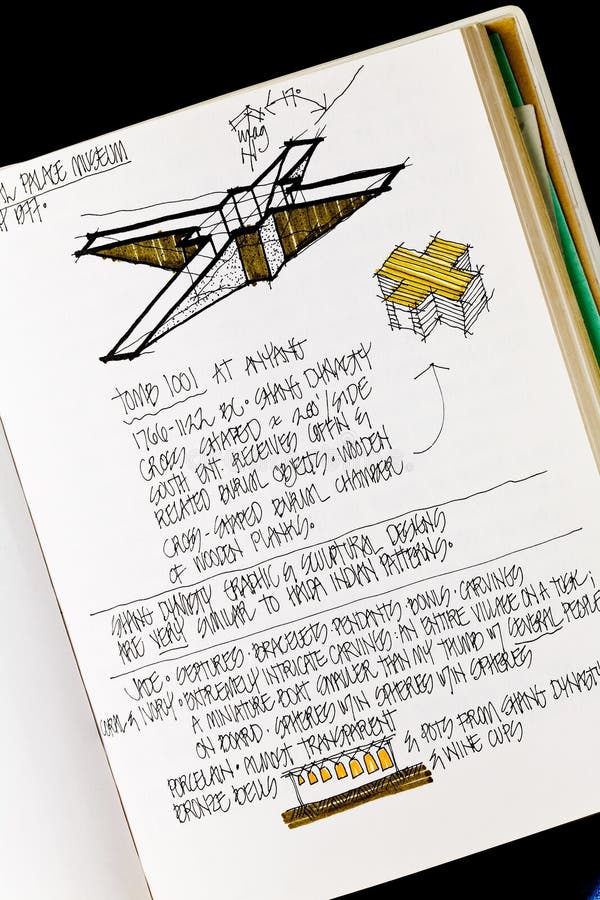 PALACE MUSEUM
17°
mag
N
TOMB 1001 AT ANYANG
1766-1122 BC. SHANG DYNASTY
CROSS SHAPED ≈ 200'/SIDE
SOUTH ENT. RECEIVES COFFIN &
RELATED BURIAL OBJECTS. WOODEN
CROSS-SHAPED BURIAL CHAMBER
OF WOODEN PLANKS.
SHANG DYNASTY GRAPHIC & SCULPTURAL DESIGNS
ARE VERY SIMILAR TO HAIDA INDIAN PATTERNS.
JADE · SCEPTURES · BRACELETS · PENDANTS · BOWLS · CARVINGS
CORAL & IVORY · EXTREMELY INTRICATE CARVINGS: AN ENTIRE VILLAGE ON A TUSK;
A MINIATURE BOAT SMALLER THAN MY THUMB W/ SEVERAL PEOPLE
ON BOARD. SPHERES W/IN SPHERES W/IN SPHERES
PORCELAIN · ALMOST TRANSPARENT
BRONZE BELLS & POTS FROM SHANG DYNASTY
& WINE CUPS